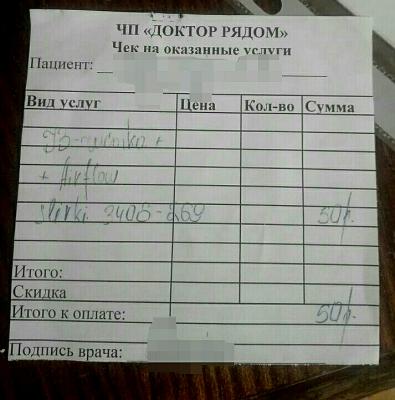 ЧП «ДОКТОР РЯДОМ»
Чек на оказанные услуги
Пациент:
Вид услуг Цена Кол-во Сумма
+ Airflow
50р.
Итого:
Скидка
Итого к оплате: 50р.
Подпись врача: